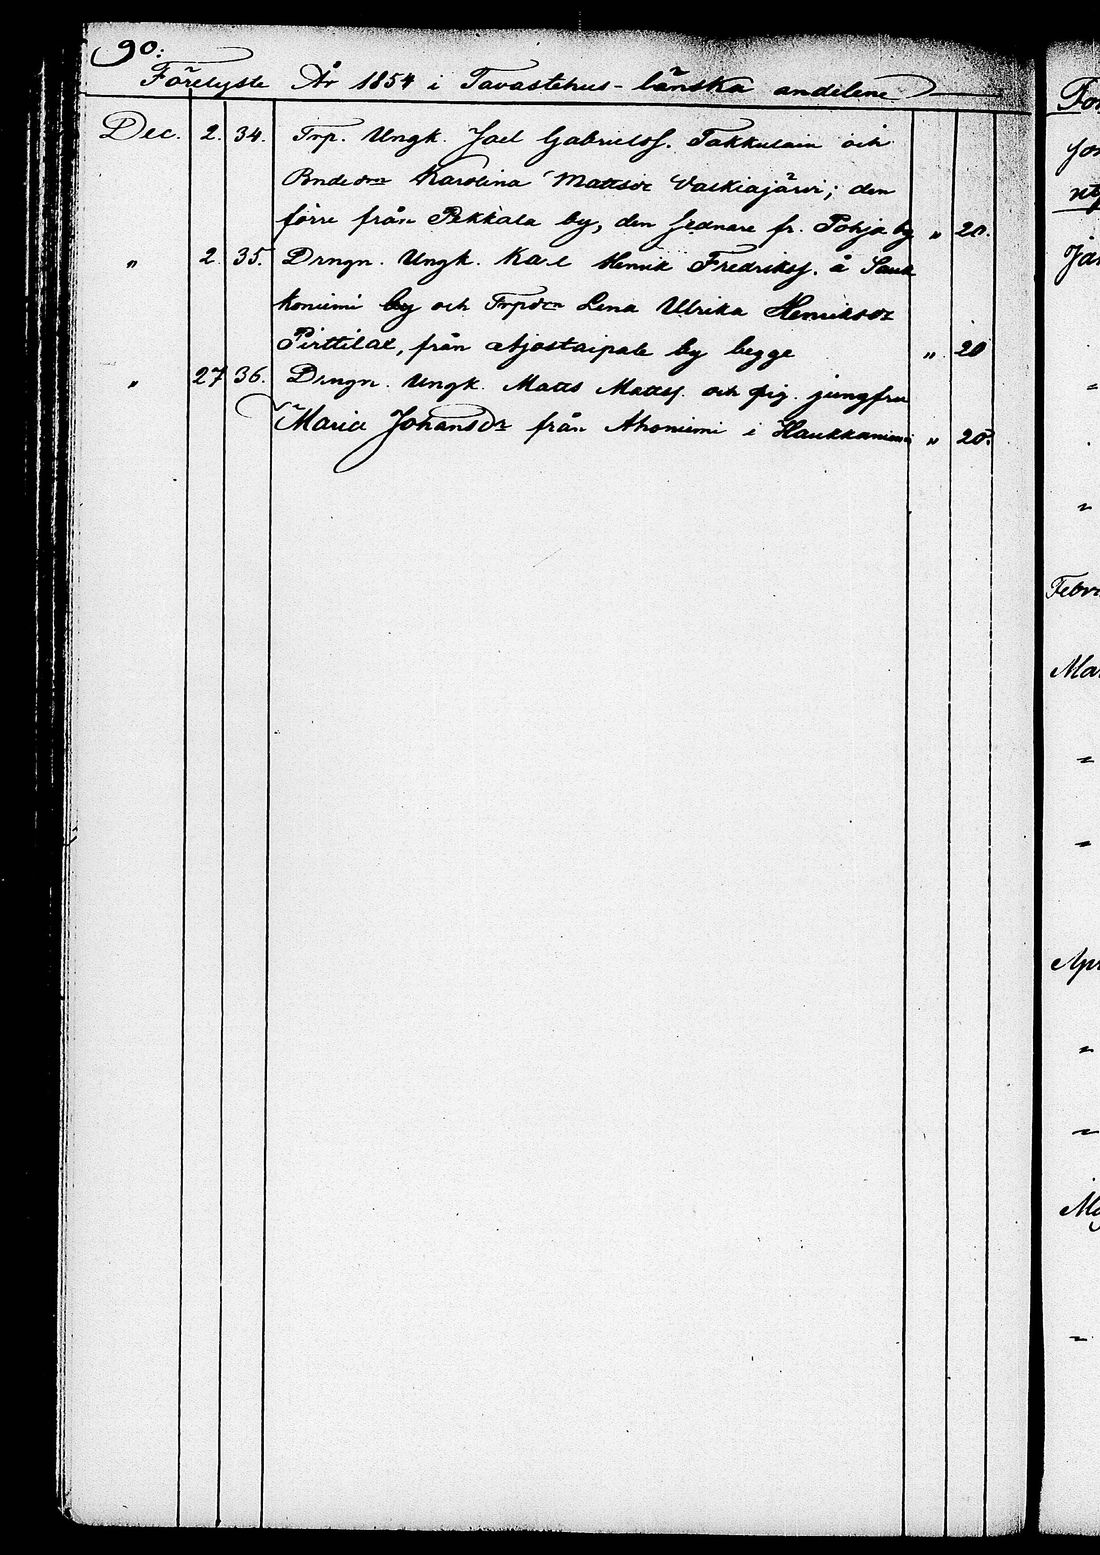 90.
Förelyste År 1854 i Tavastehus-länska andelene
Dec. 2. 34. Trp. Ungk. Joel Gabrielss. Takkulain och
Bndedtr Karolina Mattsdr Vaskiajärvi; den
förre från Pekkala by, den sednare fr. Pohja by " 20.
" 2. 35. Drngn. Ungk. Karl Henrik Fredrikss. å Sauk
koniemi by och Trpdtr Lena Ulrika Henriksdr
Pirttilax, från Ajostaipale by begge " 20
" 27 36. Drngn. Ungk. Matts Mattss. och pig. jungfru
Maria Johansdr från Ahoniemi i Haukkaniemi " 20.
Jan
"
"
Febr
Mar
"
"
Apr
"
"
"